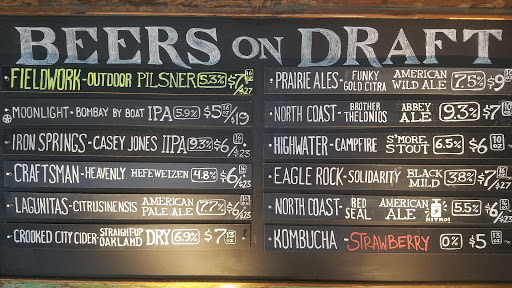 BEERS ON DRAFT
FIELDWORK - OUTDOOR PILSNER 5.3% $7/$27
MOONLIGHT - BOMBAY BY BOAT IPA 5.9% $5 16/$19
IRON SPRINGS - CASEY JONES IIPA 9.3% $6/$23
CRAFTSMAN - HEAVENLY HEFEWEIZEN 4.8% $6/$23
LAGUNITAS - CITRUSINENSIS AMERICAN PALE ALE 7.7% $6/$23
CROOKED CITY CIDER - STRAIGHT-UP OAKLAND DRY 6.9% $7 13 OZ
PRAIRIE ALES - FUNKY GOLD CITRA AMERICAN WILD ALE 7.5% $9
NORTH COAST - BROTHER THELONIOS ABBEY ALE 9.3% $7 10 OZ
HIGHWATER - CAMPFIRE S'MORE STOUT 6.5% $6 10 OZ
EAGLE ROCK - SOLIDARITY BLACK MILD 3.8% $7/$27
NORTH COAST - RED SEAL AMERICAN ALE NITRO! 5.5% $6/$23
KOMBUCHA - STRAWBERRY 0% $5 13 OZ